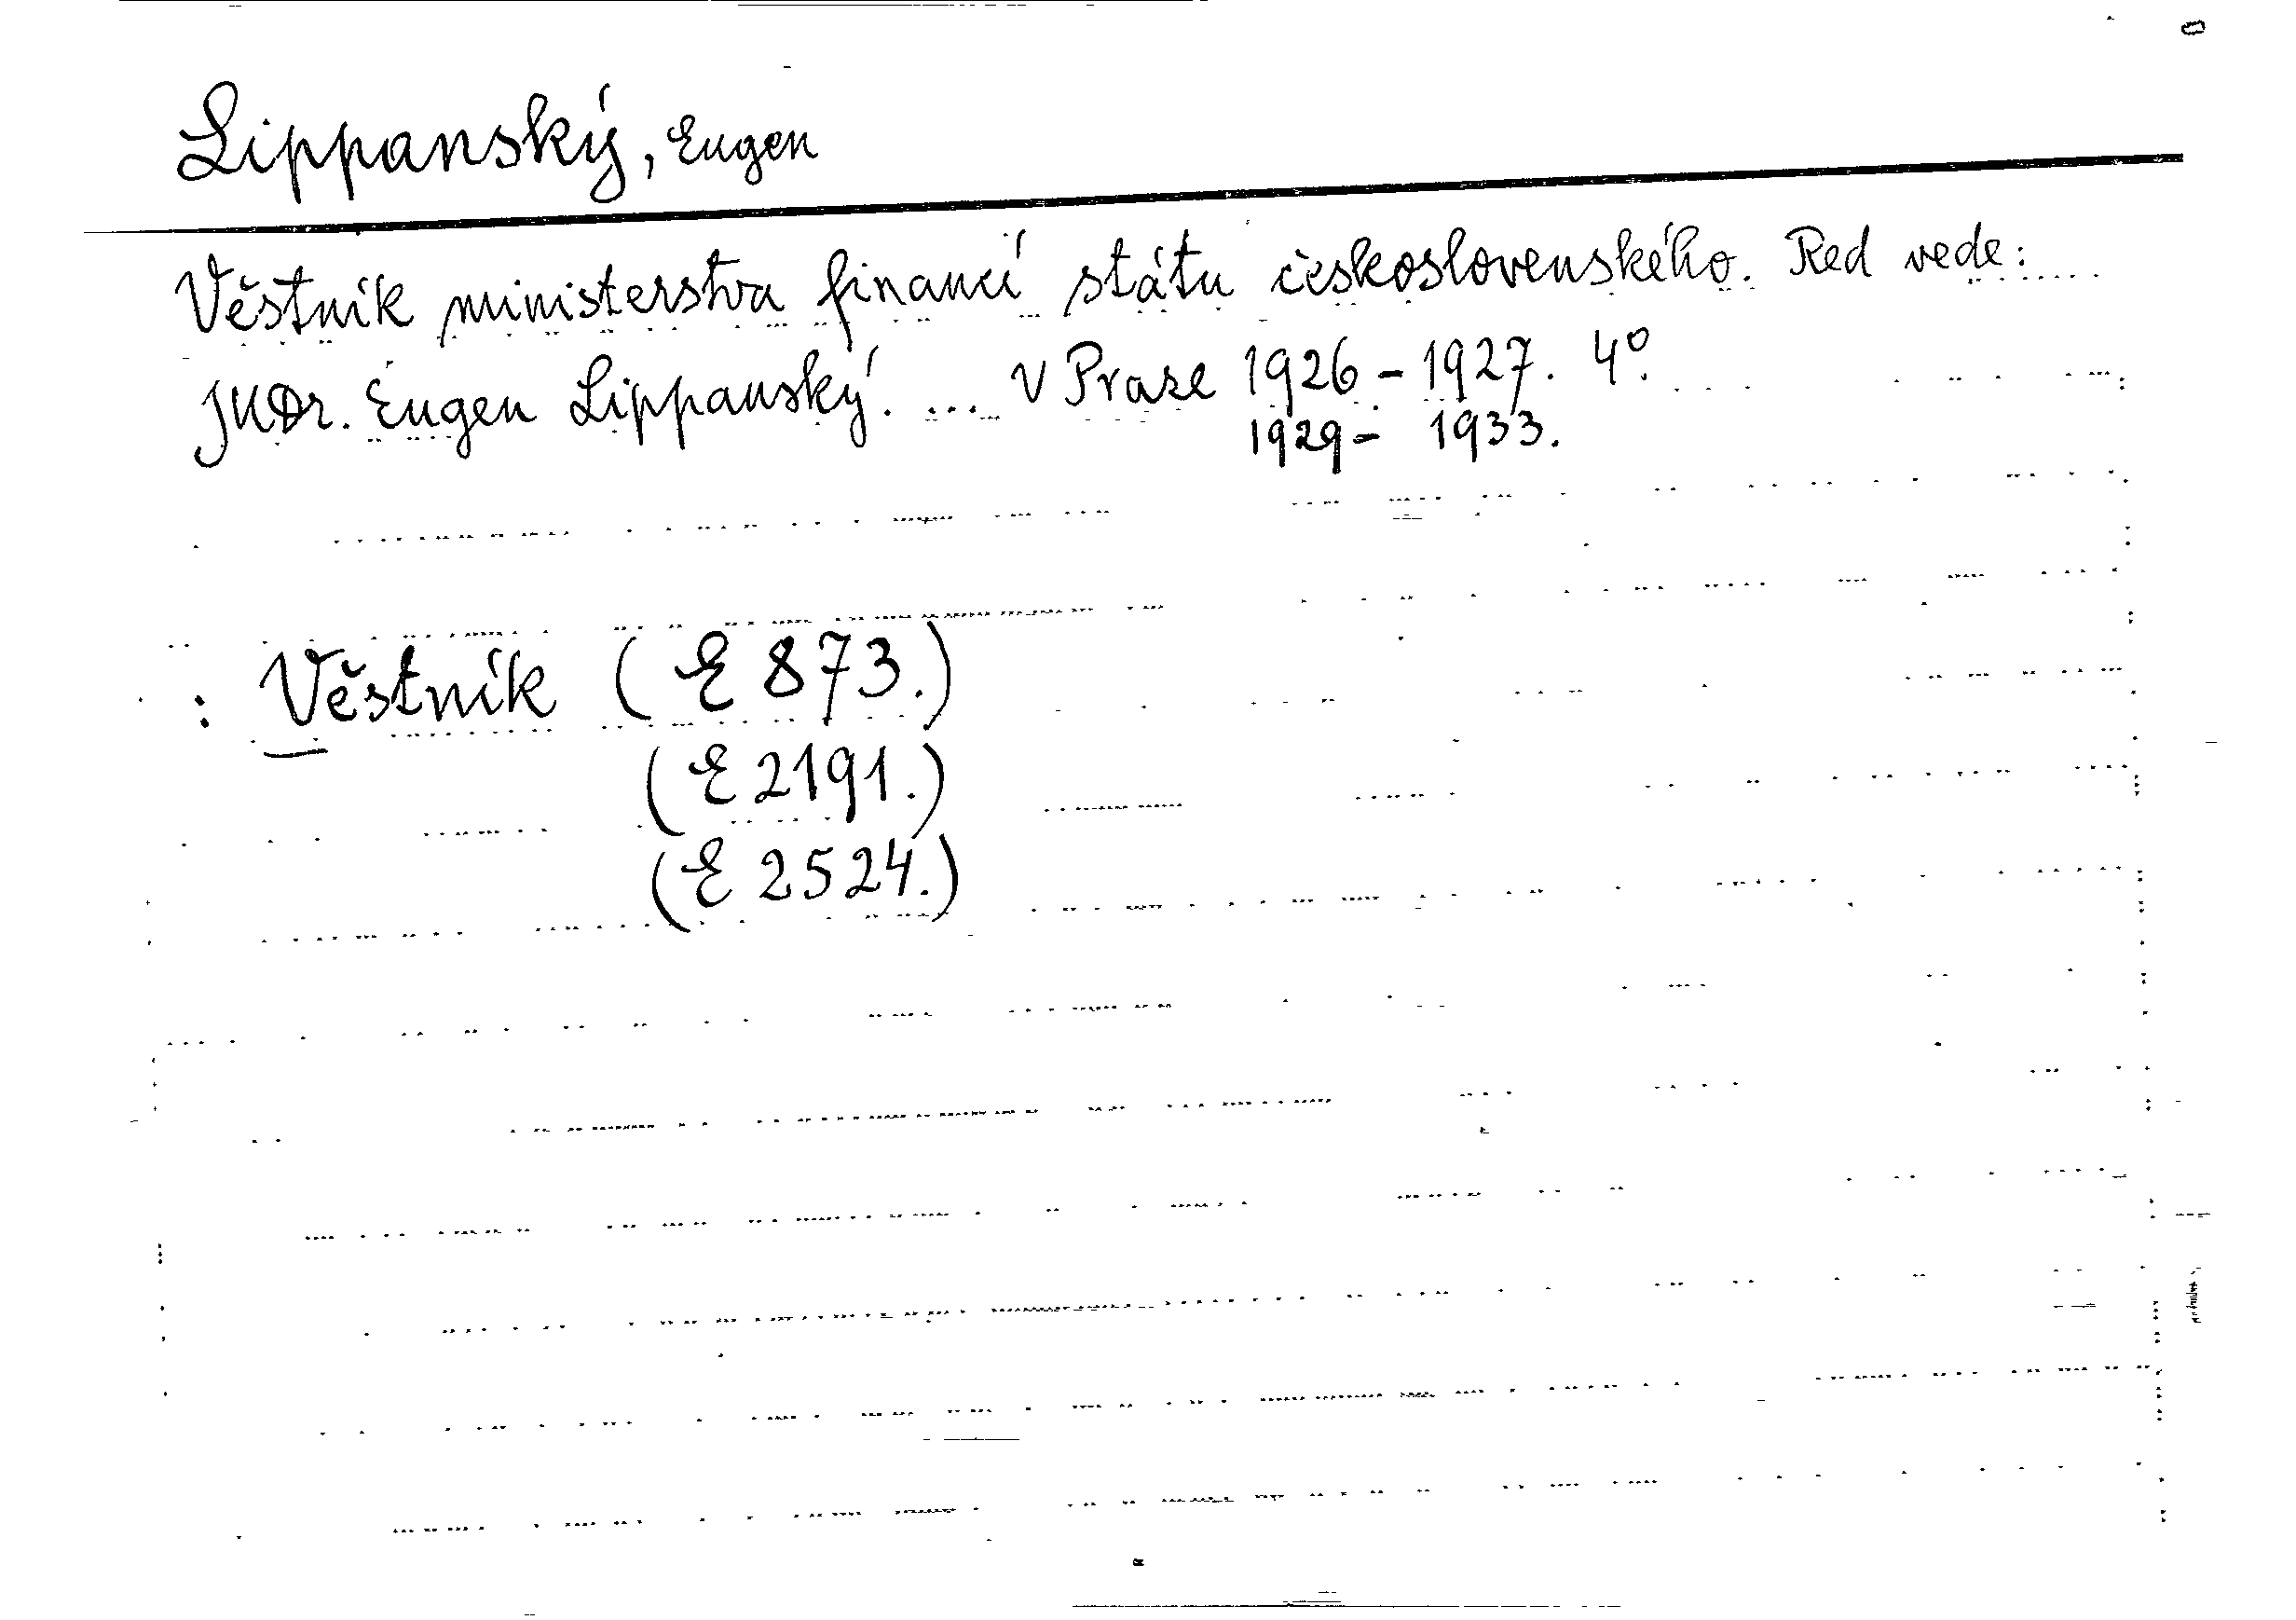 Lippanský, Eugen
Věstník ministerstva financí státu československého. Red vede: ....
JUDr. Eugen Lippanský. .... V Praze 1926 - 1927. 4°.
1929 - 1933.
: Věstník (E 873.)
(E 2191.)
(E 2524.)